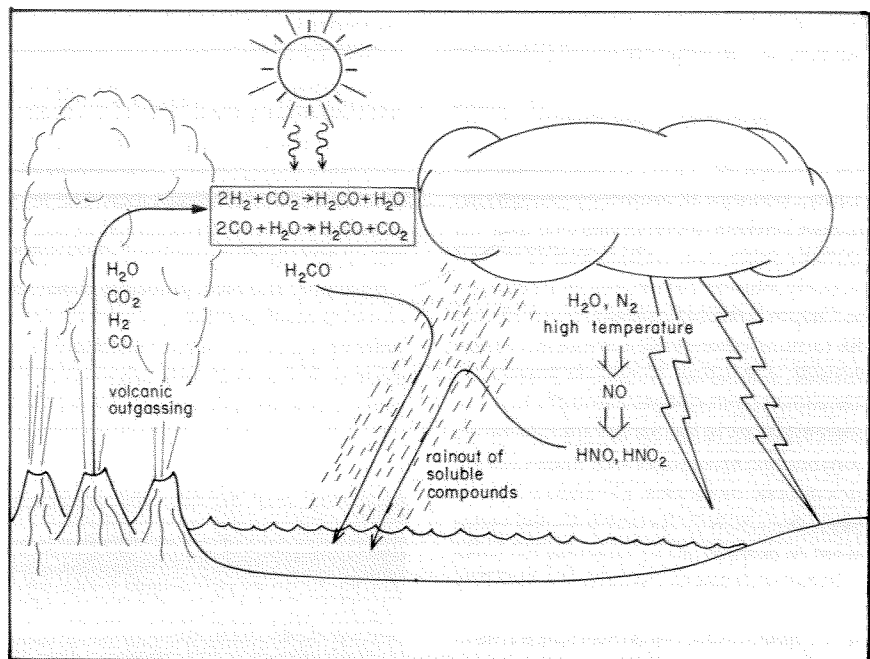 2H₂+CO₂→H₂CO+H₂O
2CO+H₂O→H₂CO+CO₂
H₂CO
H₂O
CO₂
H₂
CO
volcanic
outgassing
H₂O, N₂
high temperature
NO
HNO, HNO₂
rainout of
soluble
compounds